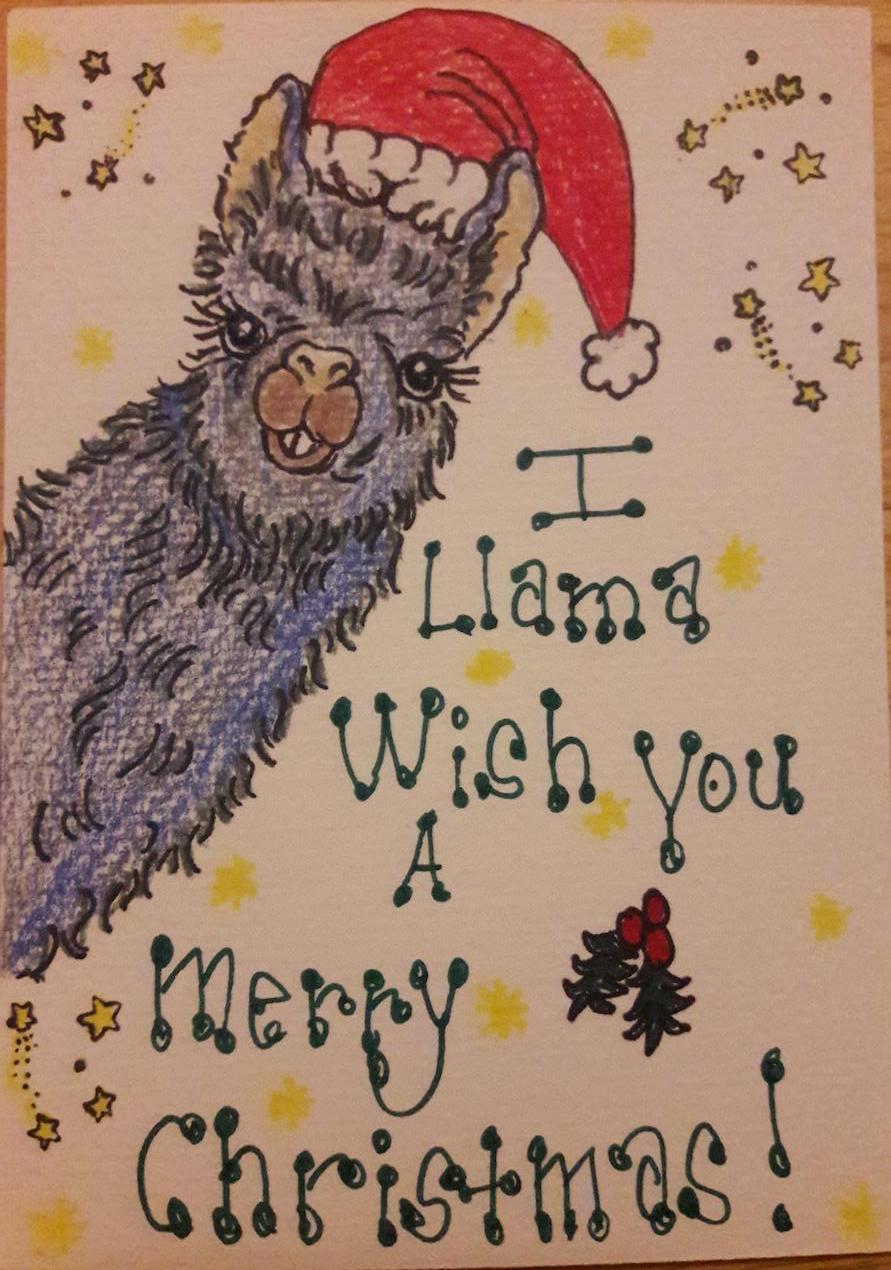 I
Llama
Wish you
A
Merry
Christmas!